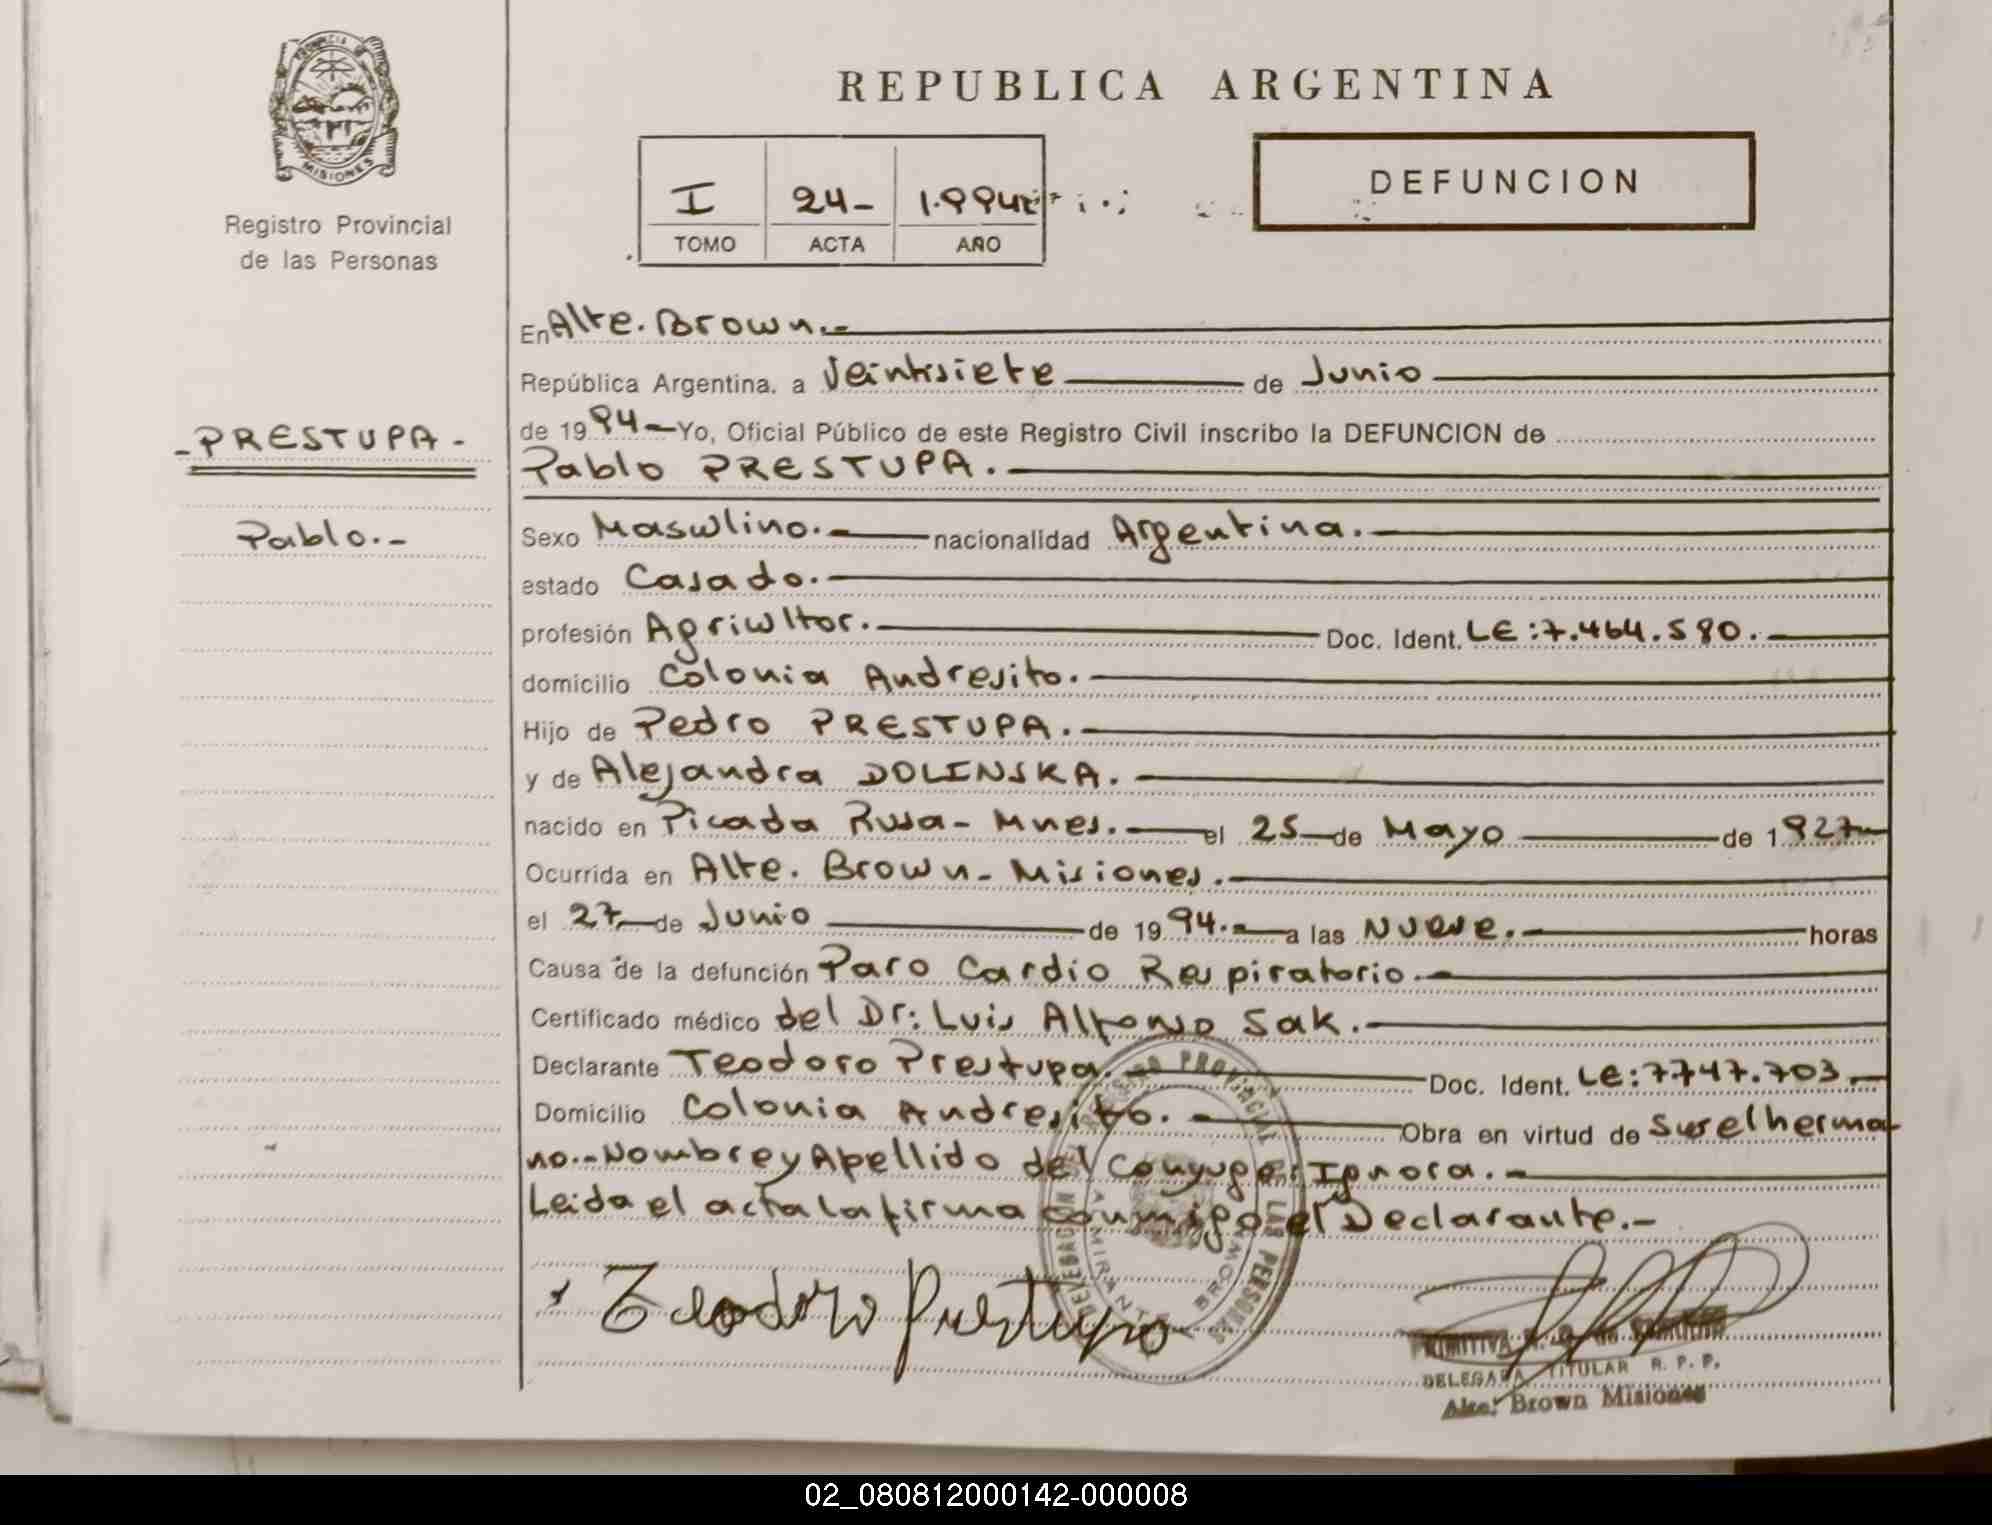 PROVINCIA DE
MISIONES
Registro Provincial
de las Personas
REPUBLICA ARGENTINA
I 24- 1.994
TOMO ACTA AÑO
DEFUNCION
-PRESTUPA-
Pablo.-
En Alte. Brown.-
República Argentina, a Veintisiete de Junio
de 1994 Yo, Oficial Público de este Registro Civil inscribo la DEFUNCION de
Pablo PRESTUPA.
Sexo Masculino. nacionalidad Argentina.
estado Casado.
profesión Agricultor. Doc. Ident. LE:7.464.590.
domicilio Colonia Andresito.
Hijo de Pedro PRESTUPA.
y de Alejandra DOLINSKA.
nacido en Picada Rusa- Mnes. el 25 de Mayo de 1927
Ocurrida en Alte. Brown- Misiones.
el 27 de Junio de 1994.- a las Nueve. horas
Causa de la defunción Paro Cardio Respiratorio.
Certificado médico del Dr: Luis Alfonso Sak.
Declarante Teodoro Prestupa. Doc. Ident. LE:7747.703
Domicilio Colonia Andresito. Obra en virtud de Ser el herma
no.-Nombre y Apellido del Conyuge: Ignora.-
Leida el acta la firma conmigo el Declarante.-
Teodoro Prestupa
REGISTRO PROVINCIAL DE LAS PERSONAS
DELEGACION
ALMIRANTE BROWN
PRIMITIVA
DELEGADA TITULAR R. P. P.
Alte. Brown Misiones
02_080812000142-000008